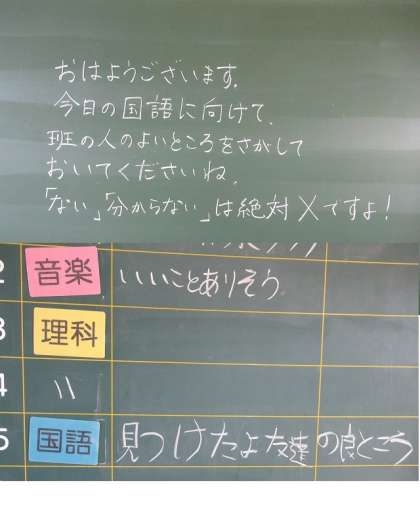 おはようございます。
今日の国語に向けて、
班の人のよいところをさがして
おいてくださいね。
「ない」「分からない」は絶対×ですよ!
2 音楽 いいことありそう
3 理科
4 〃
5 国語 見つけたよ友達の良ところ